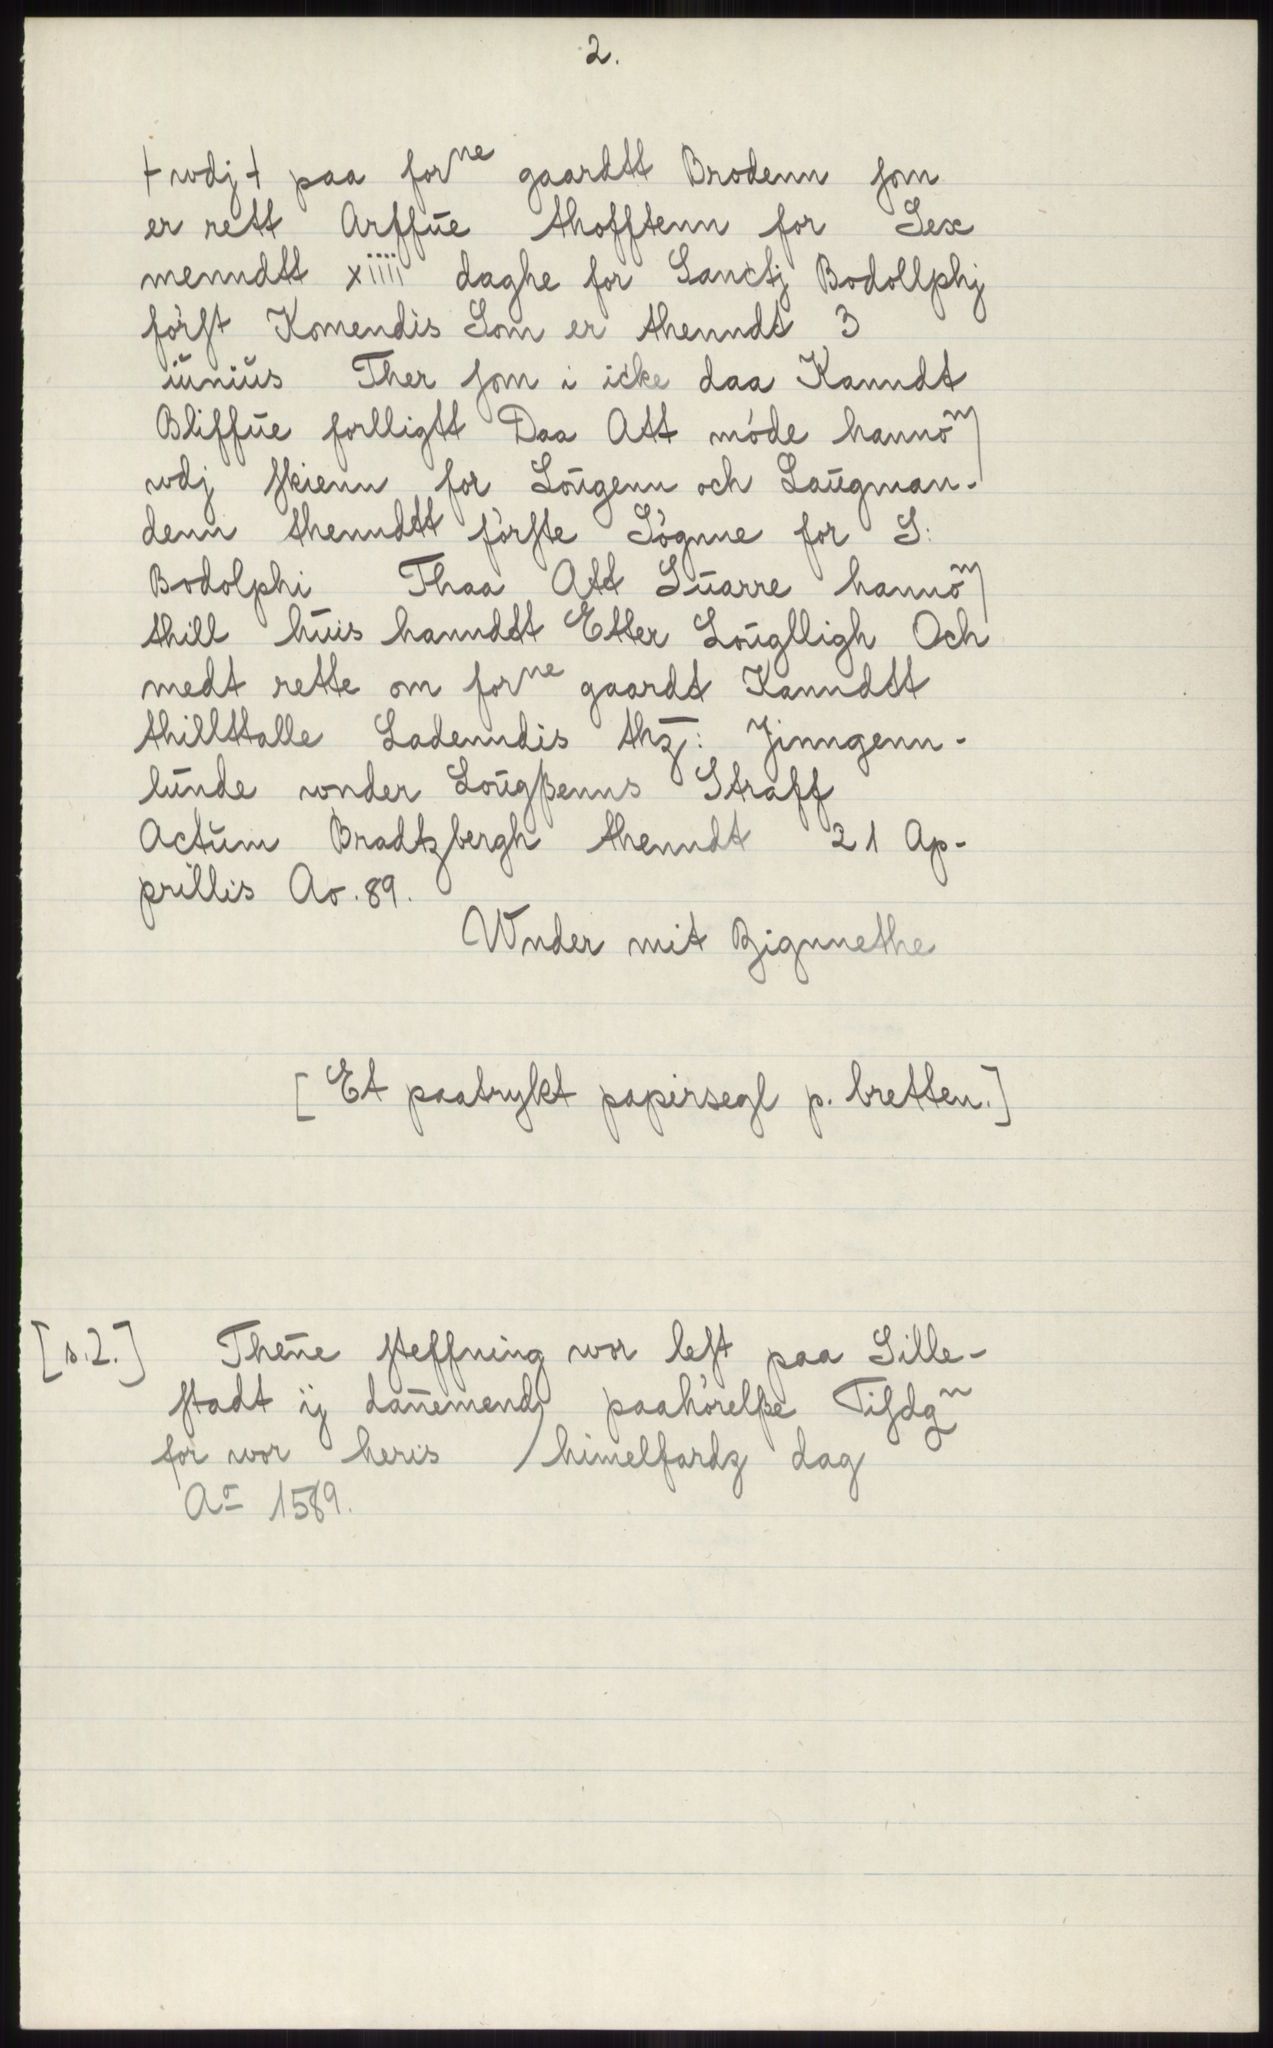 2.
+ wdj + paa forne gaardtt Brodenn som
er rett Arffŭe thofftenn for Sex
menndtt xiiii daghe for Sanctj Bodollphj
först Komendis Som er thenndt 3
iŭniŭs Ther som i icke daa Kanndt
Bliffŭe forlligtt Daa Att möde hannom
wdj skienn for Loŭgenn och Laŭgman-
denn thenndtt förste Sögnne for S:
Bodolphi Thaa Att Sŭarre hannom
thill hŭis hanndtt Etter Loŭglligh Och
medt rette om forne gaardt Kanndtt
thillttalle Ladenndis thz: Jinngenn-
lŭnde wnder Loŭgßenns Straff
Actŭm Bradtzbergh thenndt 21 Ap-
prillis Ao. 89.
Wnder mit Zignnethe
[Et paatrykt papirsegl p. bretten.]
[s. 2.] Then̄e steffning wor lest paa Lille-
stadt ij dan̄emends paahörelße Tisdgn
for wor heris himelfardz dag
Ao 1589.